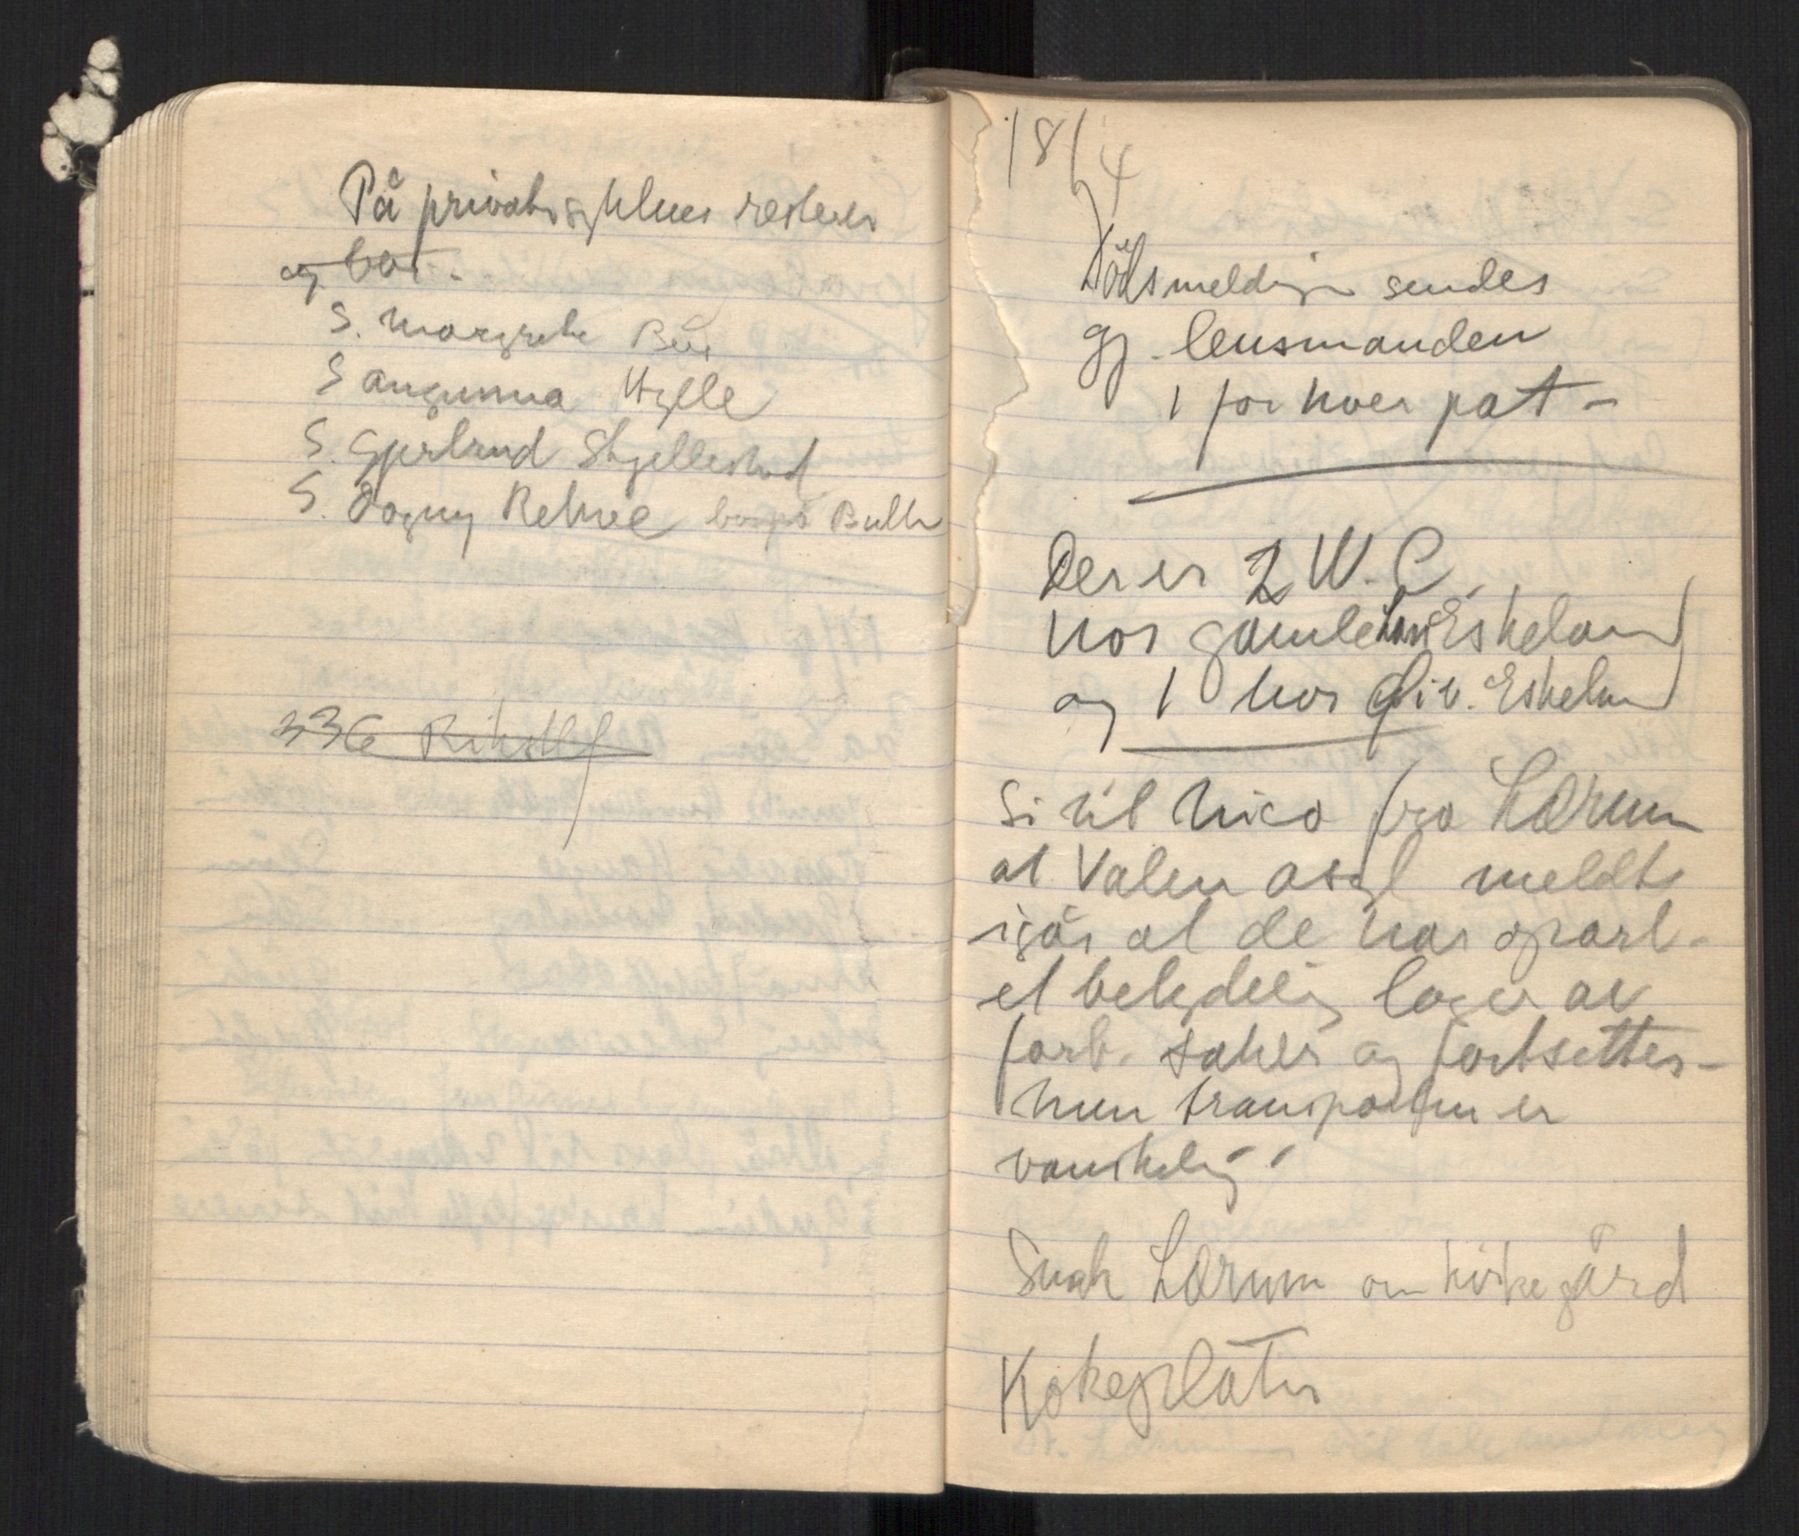 På privatsykehus resterer
og bor.
S. Margrethe Bøe
S Angunna Hylle
S. Gjertrud Skjellestad
S. Dagny Rekve bor på Bulken
336 Rikstlf
18/4
Dödsmeldinger sendes
gj. lensmanden
1 for hver pat -
Der er 2 W.C.
hos gamle Lars Eskeland
og 1 hos Eskeland
Si til Nico fra Lærum
at Valen asyl meldte
igår at de har spart
et betydelig lager av
forb. saker og fortsetter -
men transporten er
vanskelig.
Snak Lærum om
Kokeplater